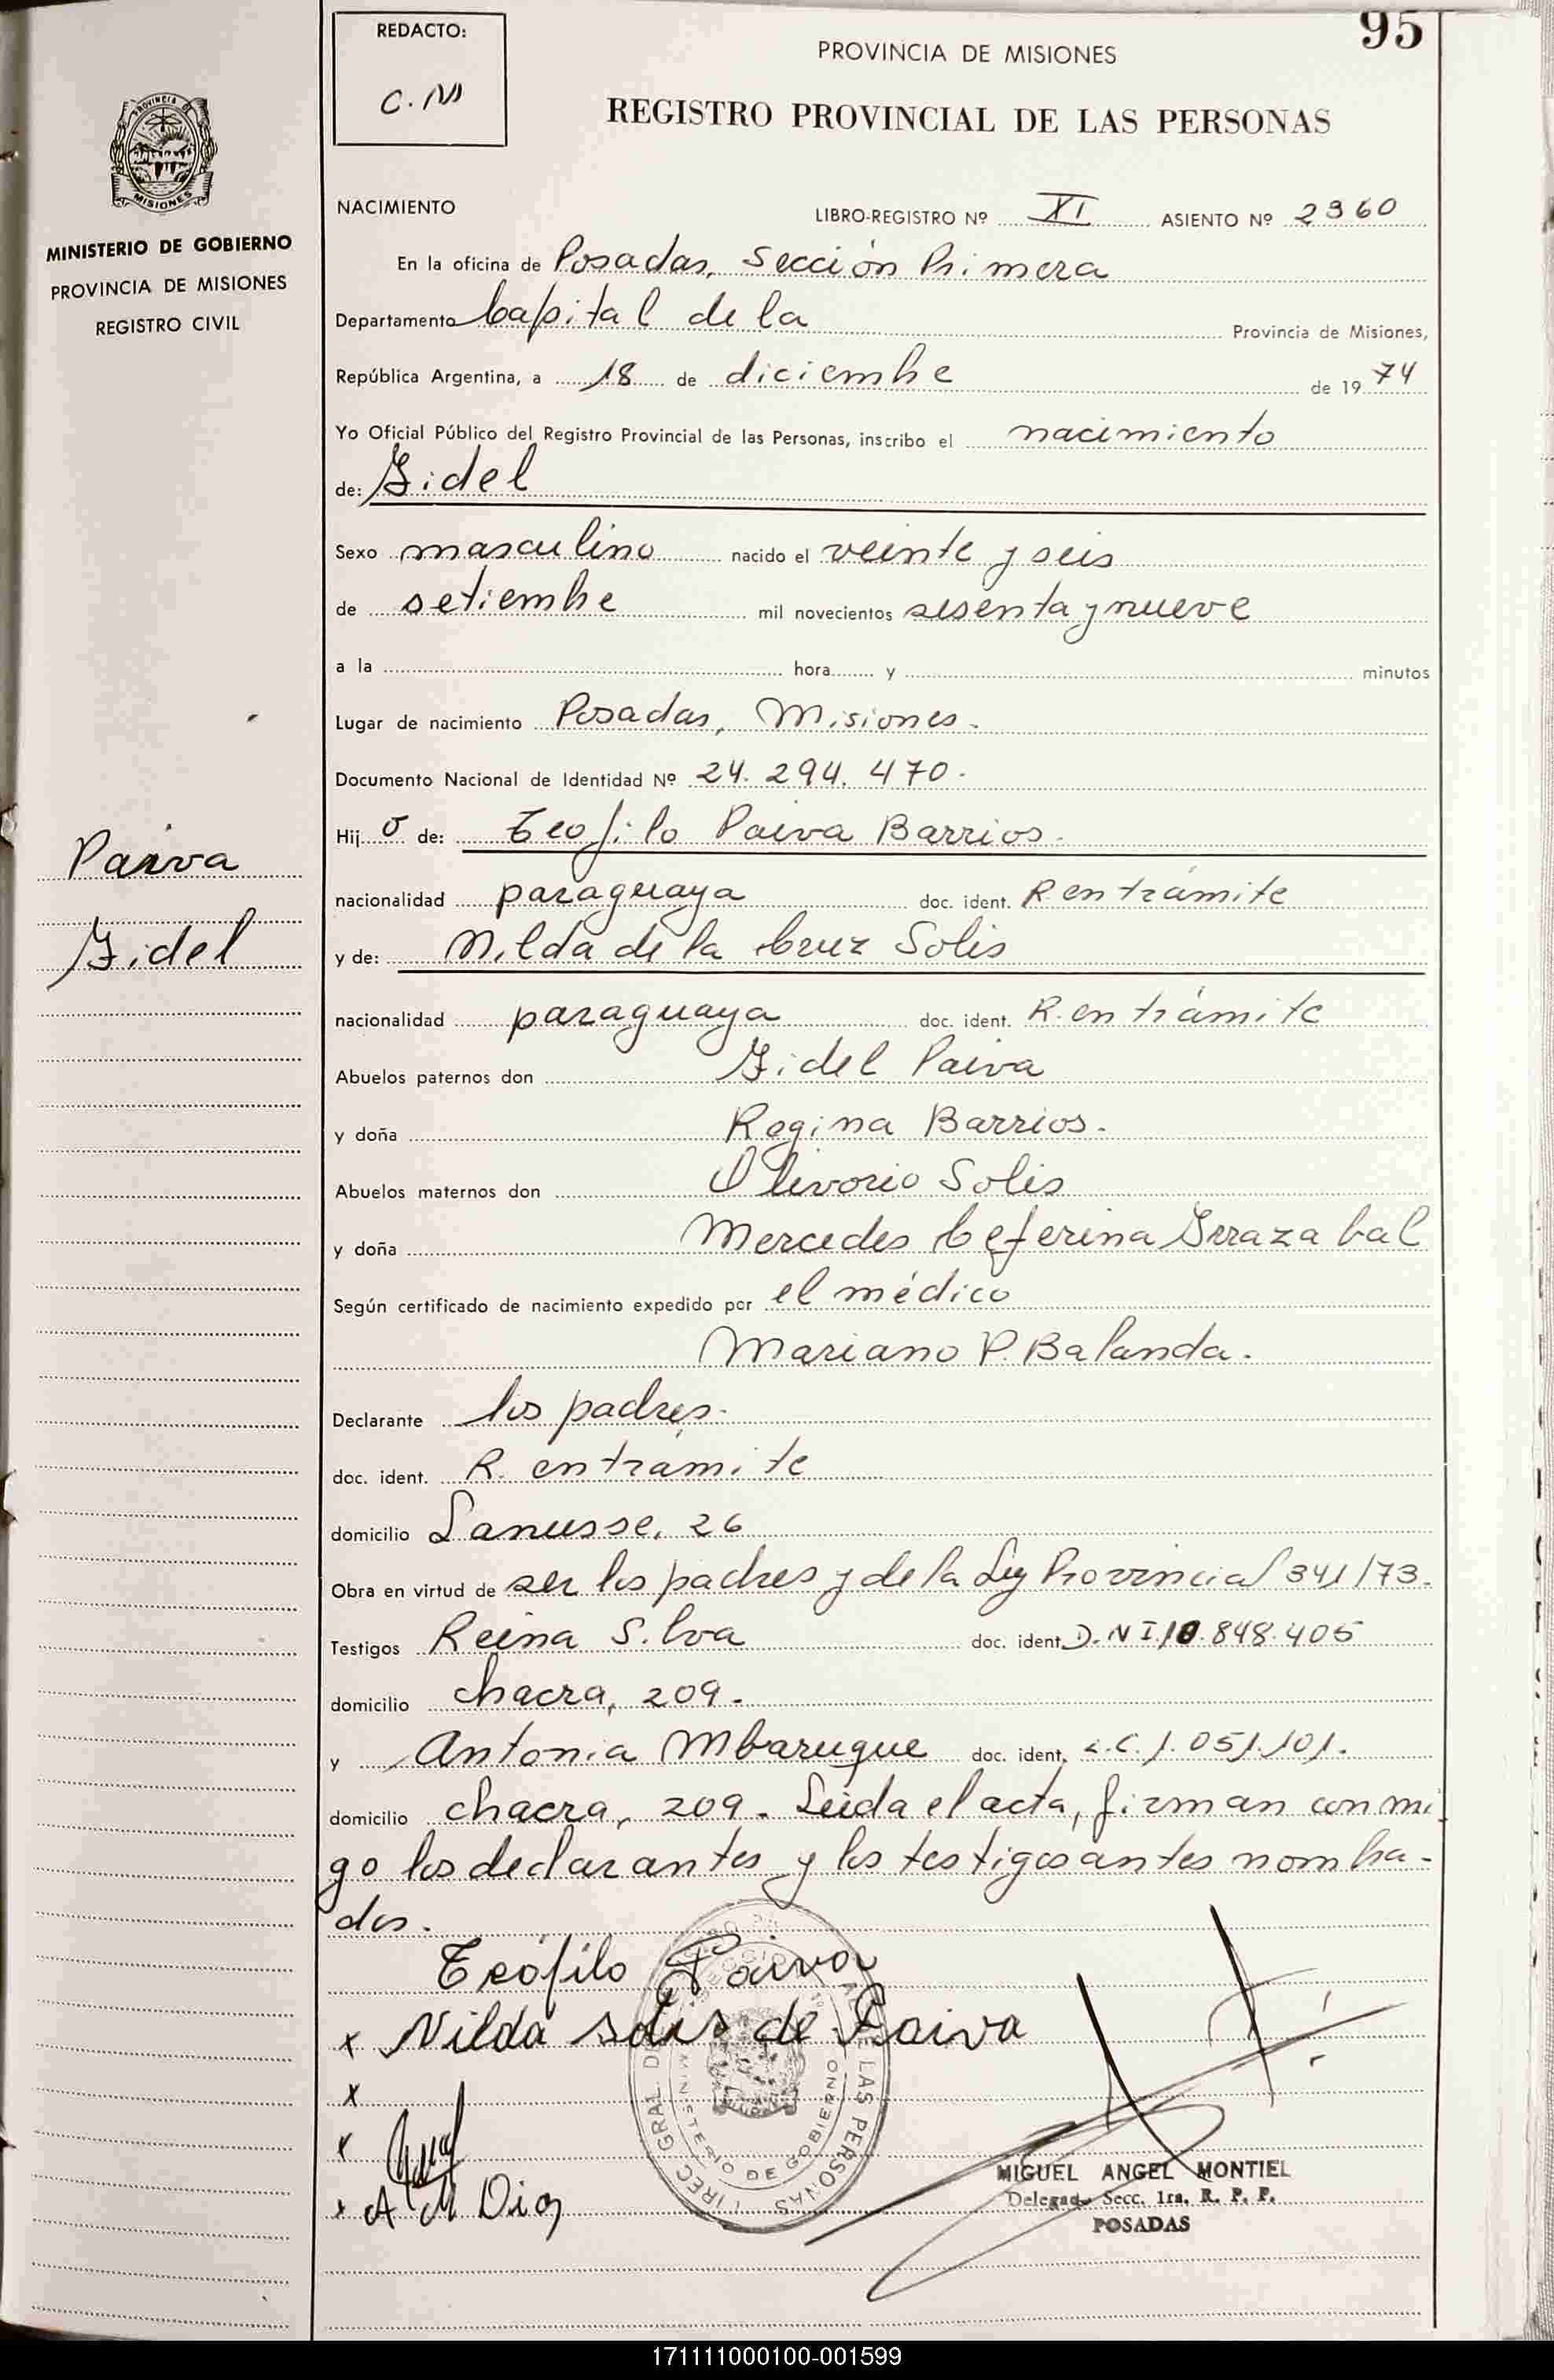 95
REDACTO:
C.N
PROVINCIA DE MISIONES
REGISTRO PROVINCIAL DE LAS PERSONAS
PROVINCIA DE
MISIONES
MINISTERIO DE GOBIERNO
PROVINCIA DE MISIONES
REGISTRO CIVIL
NACIMIENTO
LIBRO-REGISTRO Nº XI ASIENTO Nº 2360
En la oficina de Posadas, Sección Primera
Departamento Capital de la Provincia de Misiones,
República Argentina, a 18 de diciembre de 1974
Yo Oficial Público del Registro Provincial de las Personas, inscribo el nacimiento
de: Fidel
Sexo masculino nacido el veinte y seis
de setiembre mil novecientos sesenta y nueve
a la hora y minutos
Lugar de nacimiento Posadas, Misiones.
Documento Nacional de Identidad Nº 24.294.470.
Hij o de: Teofilo Paiva Barrios.
Paiva
nacionalidad paraguaya doc. ident. R. en trámite
Fidel
y de: Nilda de la Cruz Solis
nacionalidad paraguaya doc. ident. R. en trámite
Abuelos paternos don Fidel Paiva
y doña Regina Barrios.
Abuelos maternos don Olivorio Solis
y doña Mercedes Ceferina Irrazabal
Según certificado de nacimiento expedido por el médico
Mariano P. Balanda.
Declarante los padres.
doc. ident. R. en tramite
domicilio Lanusse, 26
Obra en virtud de ser los padres y de la Ley Provincial 341/73.
Testigos Reina Silva doc. ident. D.N.I. 10.848.405
domicilio chacra, 209.
y Antonia Mbaruque doc. ident. L.C. 1.051.101.
domicilio chacra, 209. Leida el acta, firman conmi
go los declarantes y los testigos antes nombra-
dos.
Teófilo Paiva
x Nilda solis de Paiva
x
x
x A M Dia
DIREC. GRAL. DE LAS PERSONAS
MINISTERIO DE GOBIERNO
MIGUEL ANGEL MONTIEL
Delegado Secc. 1ra. R. P. P.
POSADAS
171111000100-001599